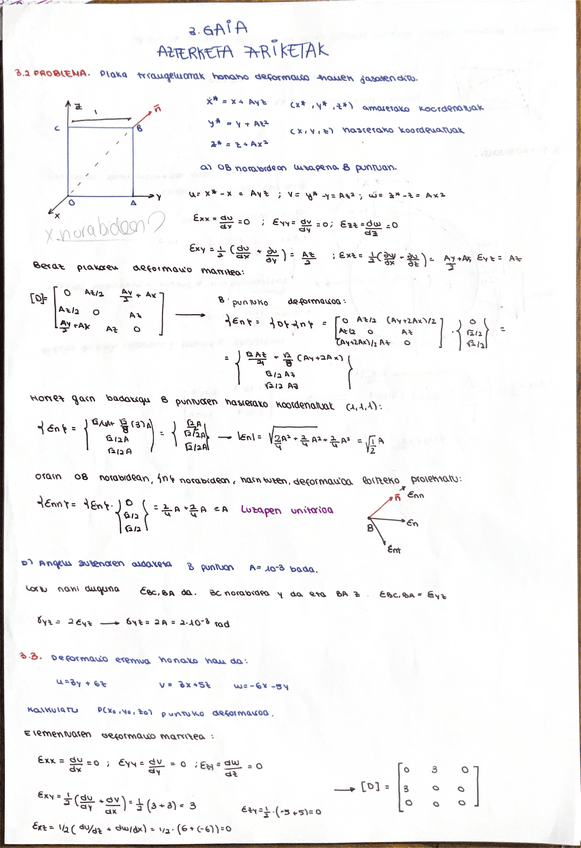 3. GAIA
AZTERKETA ARIKETAK
3.2 PROBLEMA. Plaka triangeluarrak honako deformazio hauek jasaten ditu.
x* = x + Ayz (x*, y*, z*) amaierako koordenatuak
y* = y + Az² (x, y, z) hasierako koordenatuak
z* = z + Ax²
z
1
n̄
C
B
O
A
y
x
x norabidean?
a) OB norabidean luzapena B puntuan.
u = x* - x = Ayz ; v = y* - y = Az² ; w = z* - z = Ax²
Exx = du/dx = 0 ; Eyy = dv/dy = 0 ; Ezz = dw/dz = 0
Exy = 1/2 (du/dx + dv/dy) = Az/2 ; Exz = 1/2 (du/dx + dw/dz) = Ay/2 + Ax Eyz = Az
Beraz plakaren deformazio matrizea:
[D] = [ 0 Az/2 Ay/2 + Ax
Az/2 0 Az
Ay/2 + Ax Az 0 ]
B puntuko deformazioa:
{En} = {D}{n} = [ 0 Az/2 (Ay+2Ax)/2
Az/2 0 Az
(Ay+2Ax)/2 Az 0 ] · { 0
√2/2
√2/2 } =
= { √2Az/4 + √2/4 (Ay+2Ax)
√2/2 Az
√2/2 Az }
Honez gain badakigu B puntuaren hasierako koordenatuak (1,1,1):
{En} = = { √2A
√2/2A
√2/2A } → |En| =
Orain OB norabidean, {n} norabidean, hain zuzen, deformazioa lortzeko proiektatu:
{Enn} = {En} · { 0
√2/2
√2/2 } = 2/4 A + 2/4 A = A Luzapen unitarioa
n̄
Enn
B
En
Ent
b) Angelu zuzenaren aldaketa B puntuan A = 10⁻³ bada.
Lortu nahi duguna EBC,BA da. BC norabidea y da eta BA z. EBC,BA = Eyz
γyz = 2Eyz → γyz = 2A = 2·10⁻³ rad
3.3. Deformazio eremua honako hau da:
u = 3y + 6z v = 3x + 5z w = -6x - 5y
Kalkulatu P(x₀, y₀, z₀) puntuko deformazioa.
Elementuaren deformazio matrizea:
Exx = du/dx = 0 ; Eyy = dv/dy = 0 ; Ezz = dw/dz = 0
Exy = 1/2 (du/dy + dv/dx) = 1/2 (3 + 3) = 3 Ezy = 1/2 · (-5 + 5) = 0
Exz = 1/2 (du/dz + dw/dx) = 1/2 · (6 + (-6)) = 0
→ [D] = [ 0 3 0
3 0 0
0 0 0 ]